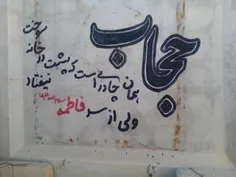 حجاب
همان چادری است که پشت در خانه سوخت
ولی از سر فاطمه نیفتاد